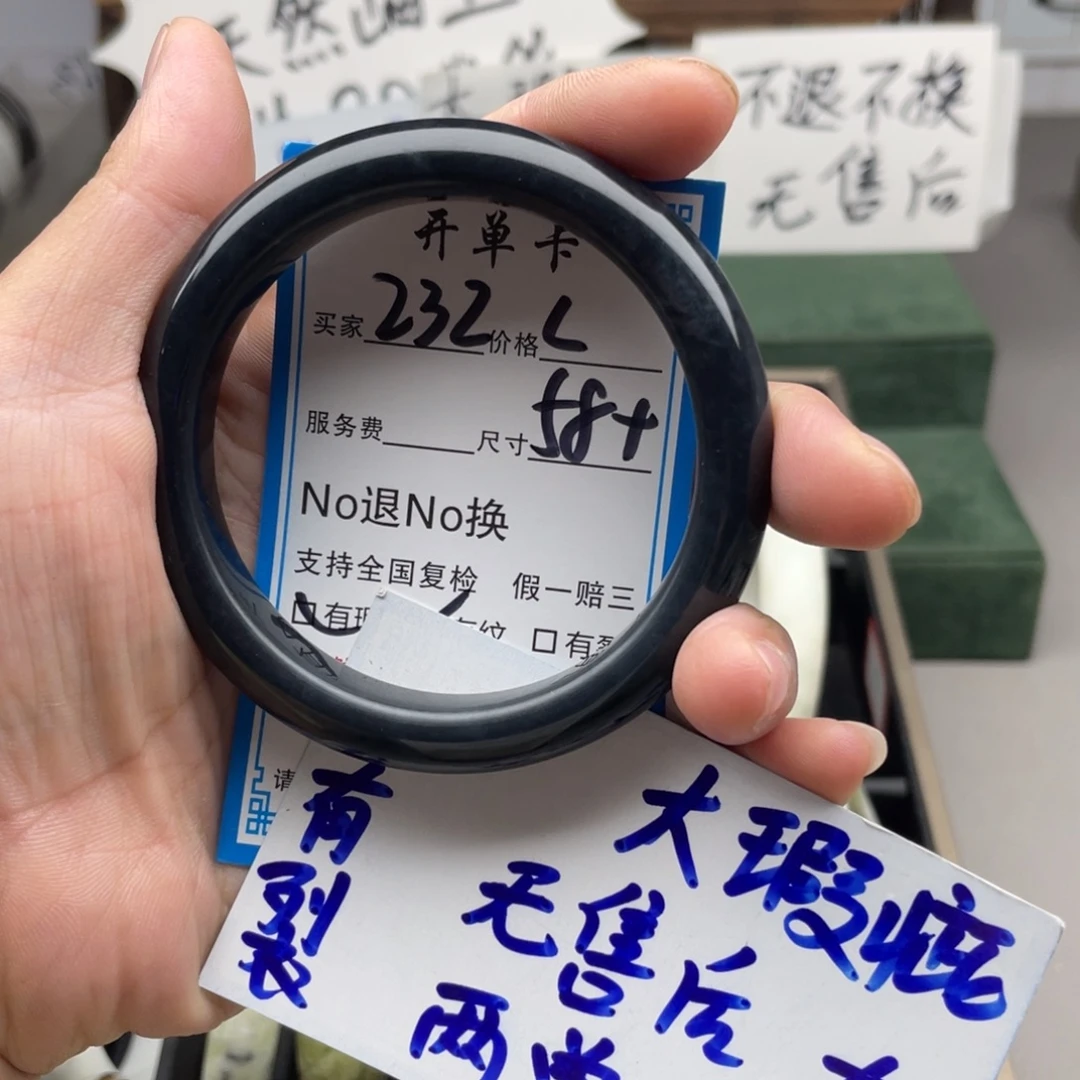 不退不换
无售后
开单卡
买家 232 价格 L
服务费 尺寸 58+
No退No换
支持全国复检 假一赔三
有 有纹 有裂
请
有裂
大瑕疵
无售后
两